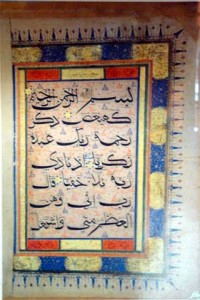 بسم الله الرحمن الرحيم
كهيعص ذكر
رحمة ربك عبده
زكريا اذ نادى
ربه نداء خفيا قال
رب اني وهن
العظم مني واشتعل